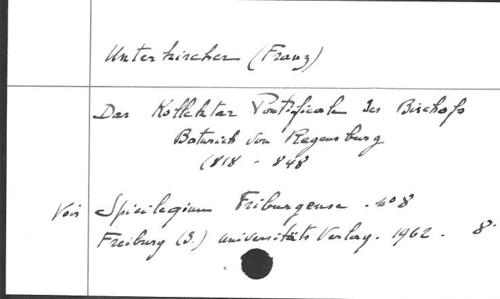 Unterkircher (Franz)
Das Kollektar Pontificale des Bischofs
Baturich von Regensburg
(818 - 848
Voir Spicilegium Friburgense . no 8
Freiburg (S.) Universitäts Verlag. 1962 . 8°